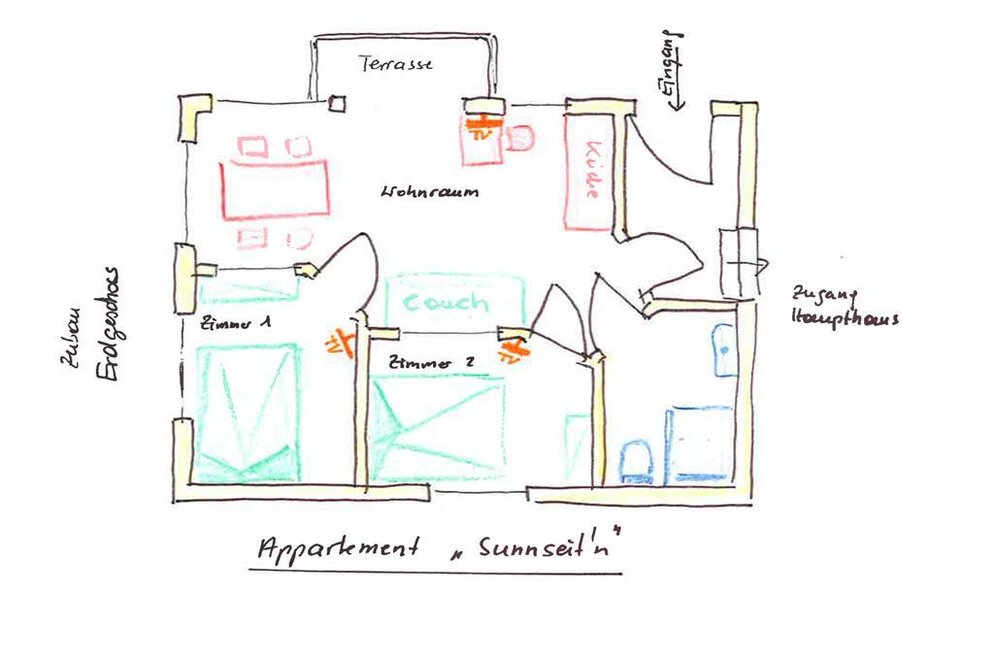 Terrasse
Eingang
Küche
Wohnraum
Couch
Zimmer 1
Zimmer 2
TV
TV
TV
Zubau
Erdgeschoss
Zugang
Haupthaus
Appartement „Sunnseit'n"